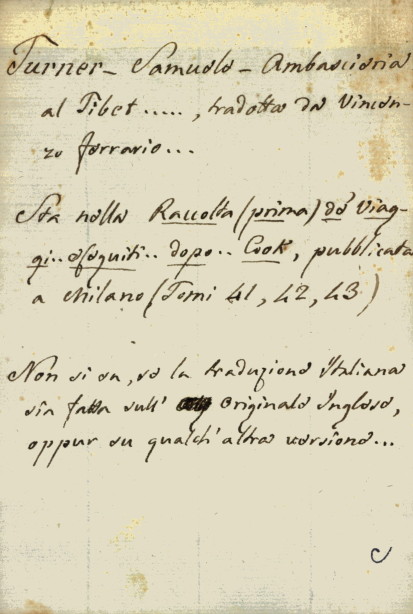 Turner - Samuele - Ambascieria
al Tibet ....., tradotta da Vincen-
zo ferrario...
Sta nella Raccolta (prima) de' Viag-
gi.. eseguiti.. dopo.. Cook, pubblicata
a Milano (Tomi 41, 42, 43)
Non si sa, se la traduzione Italiana
sia fatta sull' Originale Inglese,
oppur su qualch' altra versione...